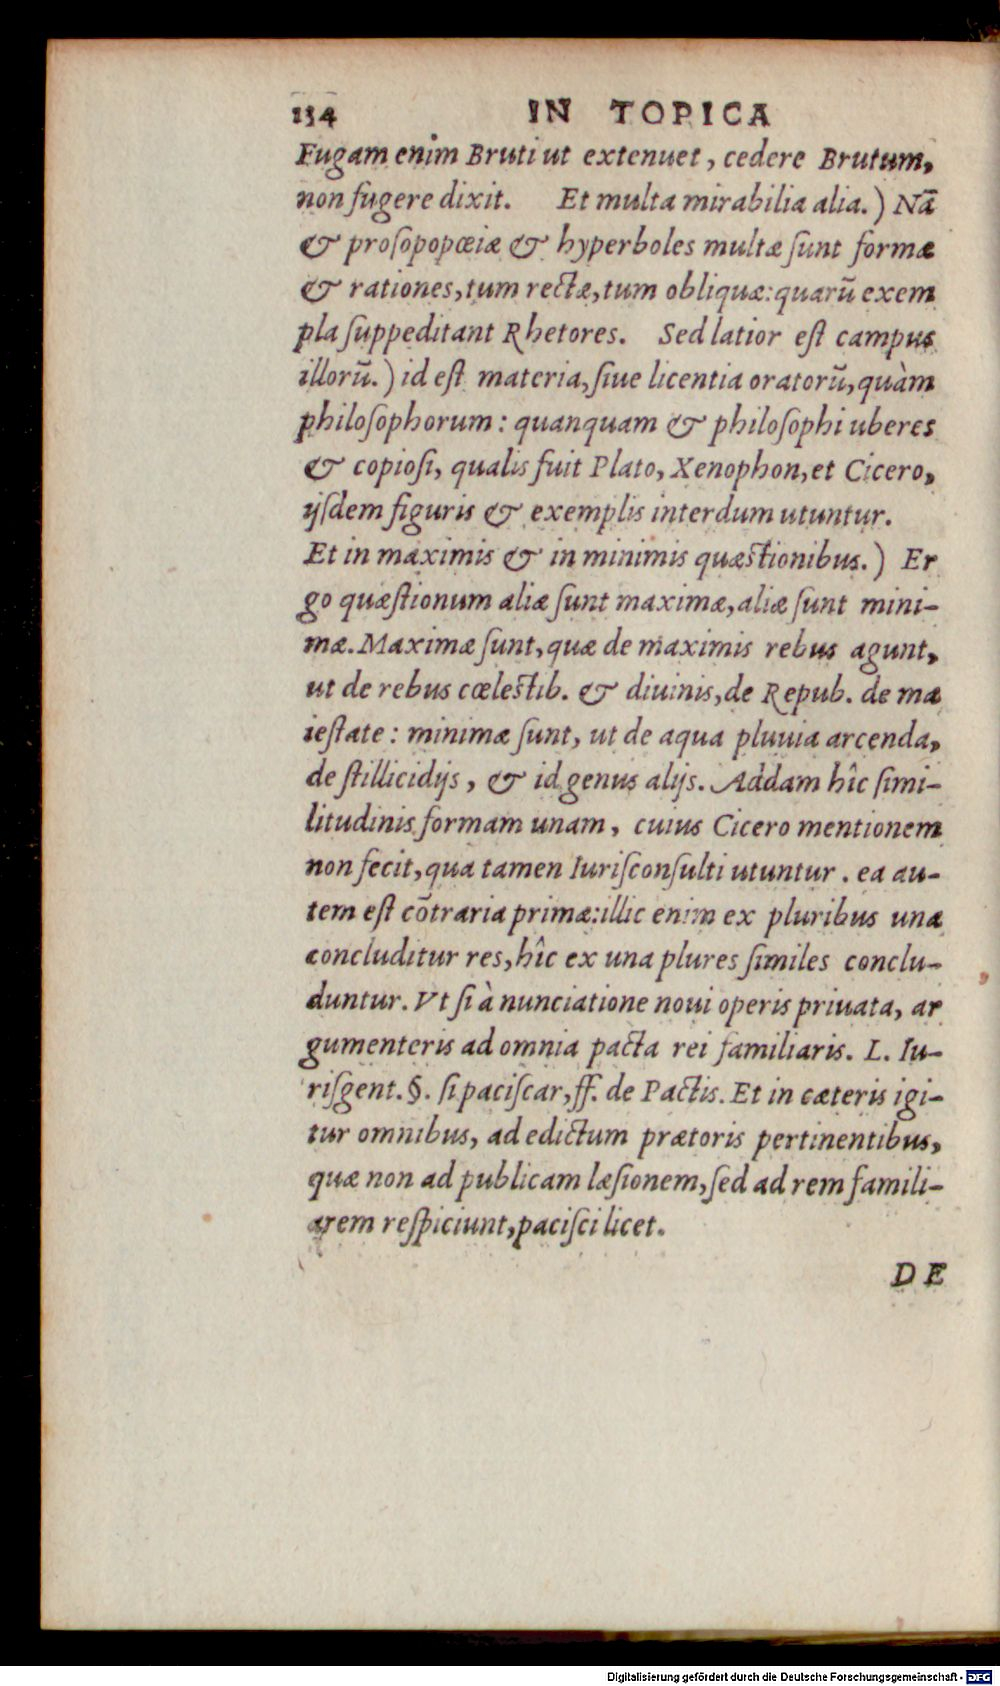 134 IN TOPICA
Fugam enim Bruti ut extenuet, cedere Brutum,
non fugere dixit. Et multa mirabilia alia.) Nā
& proſopopœiæ & hyperboles multæ ſunt formæ
& rationes, tum rectæ, tum obliquæ: quarū exem
pla ſuppeditant Rhetores. Sed latior eſt campus
illorū.) id eſt materia, ſiue licentia oratorū, quàm
philoſophorum: quanquam & philoſophi uberes
& copioſi, qualis fuit Plato, Xenophon, et Cicero,
ijſdem figuris & exemplis interdum utuntur.
Et in maximis & in minimis quæſtionibus.) Er
go quæſtionum aliæ ſunt maximæ, aliæ ſunt mini-
mæ. Maximæ ſunt, quæ de maximis rebus agunt,
ut de rebus cœleſtib. & diuinis, de Repub. de ma
ieſtate: minimæ ſunt, ut de aqua pluuia arcenda,
de ſtillicidijs, & id genus alijs. Addam hîc ſimi-
litudinis formam unam, cuius Cicero mentionem
non fecit, qua tamen Iuriſconſulti utuntur. ea au-
tem eſt cōtraria primæ: illic enim ex pluribus una
concluditur res, hîc ex una plures ſimiles conclu-
duntur. Vt ſi à nunciatione noui operis priuata, ar
gumenteris ad omnia pacta rei familiaris. L. Iu-
riſgent. §. ſi paciſcar, ff. de Pactis. Et in cæteris igi-
tur omnibus, ad edictum prætoris pertinentibus,
quæ non ad publicam læſionem, ſed ad rem famili-
arem reſpiciunt, paciſci licet.
DE
Digitalisierung gefördert durch die Deutsche Forschungsgemeinschaft - DFG